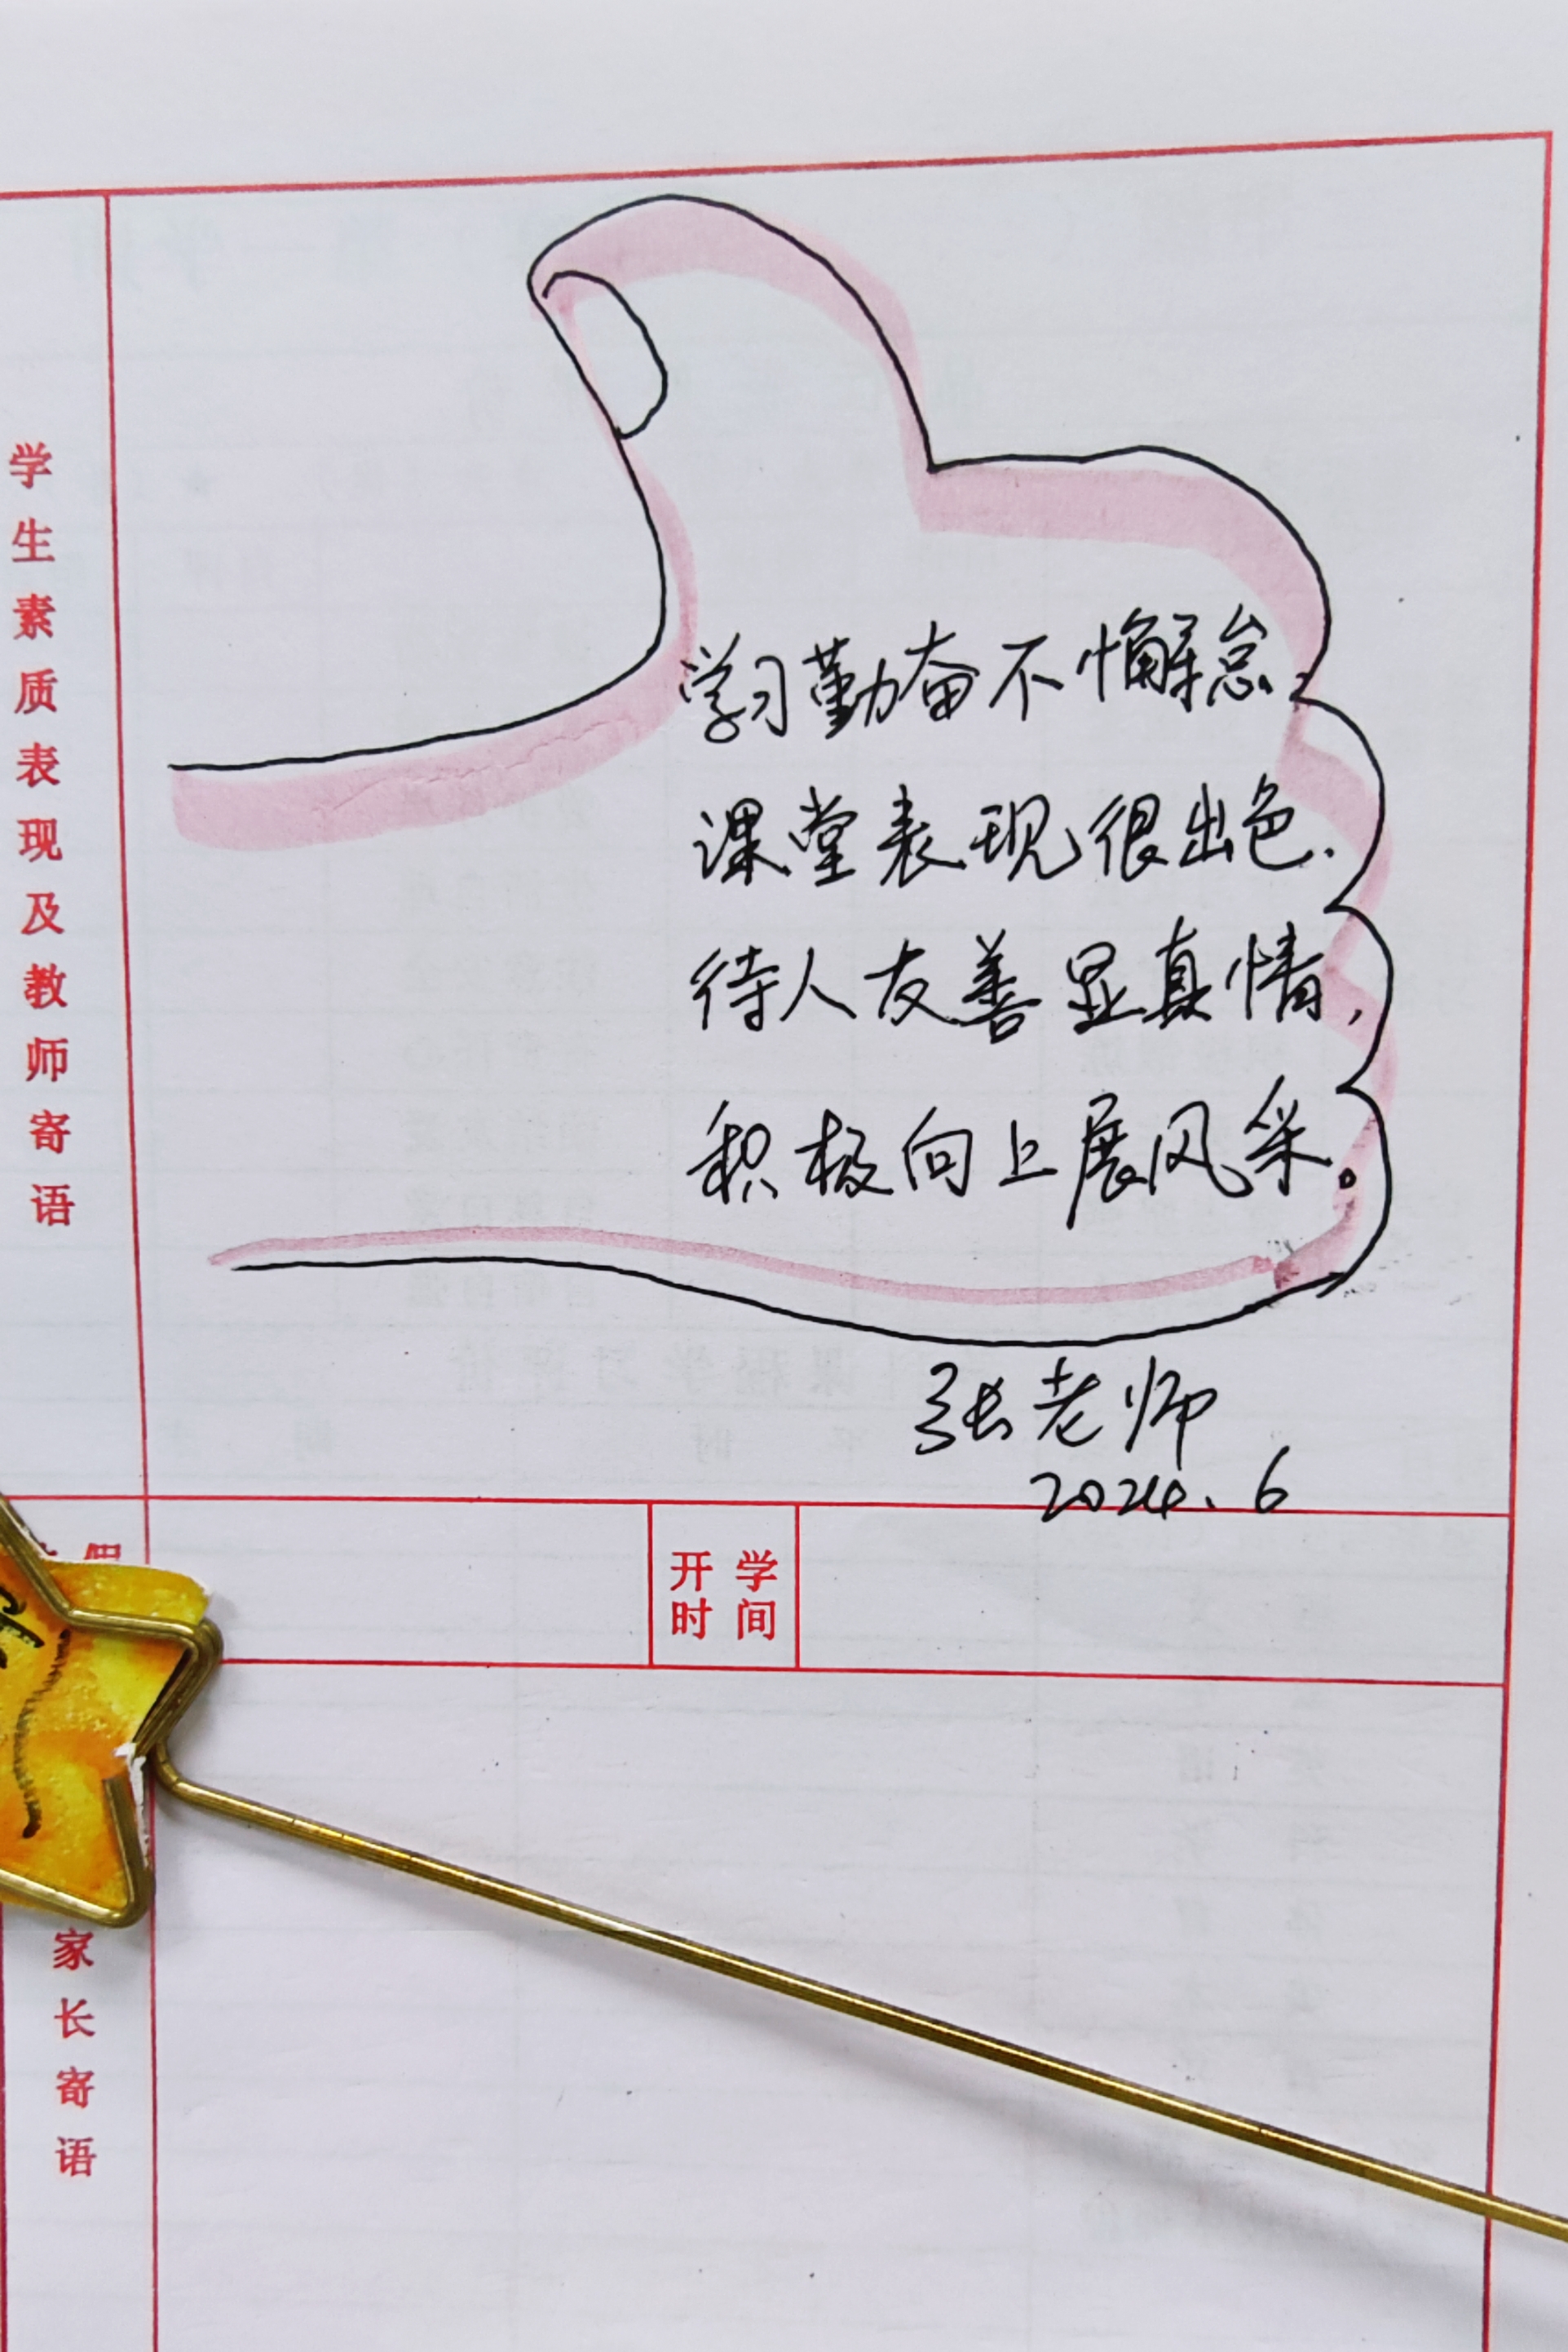 学生素质表现及教师寄语
学习勤奋不懈怠,
课堂表现很出色.
待人友善显真情,
积极向上展风采。
张老师
2024.6
开学
时间
家长寄语